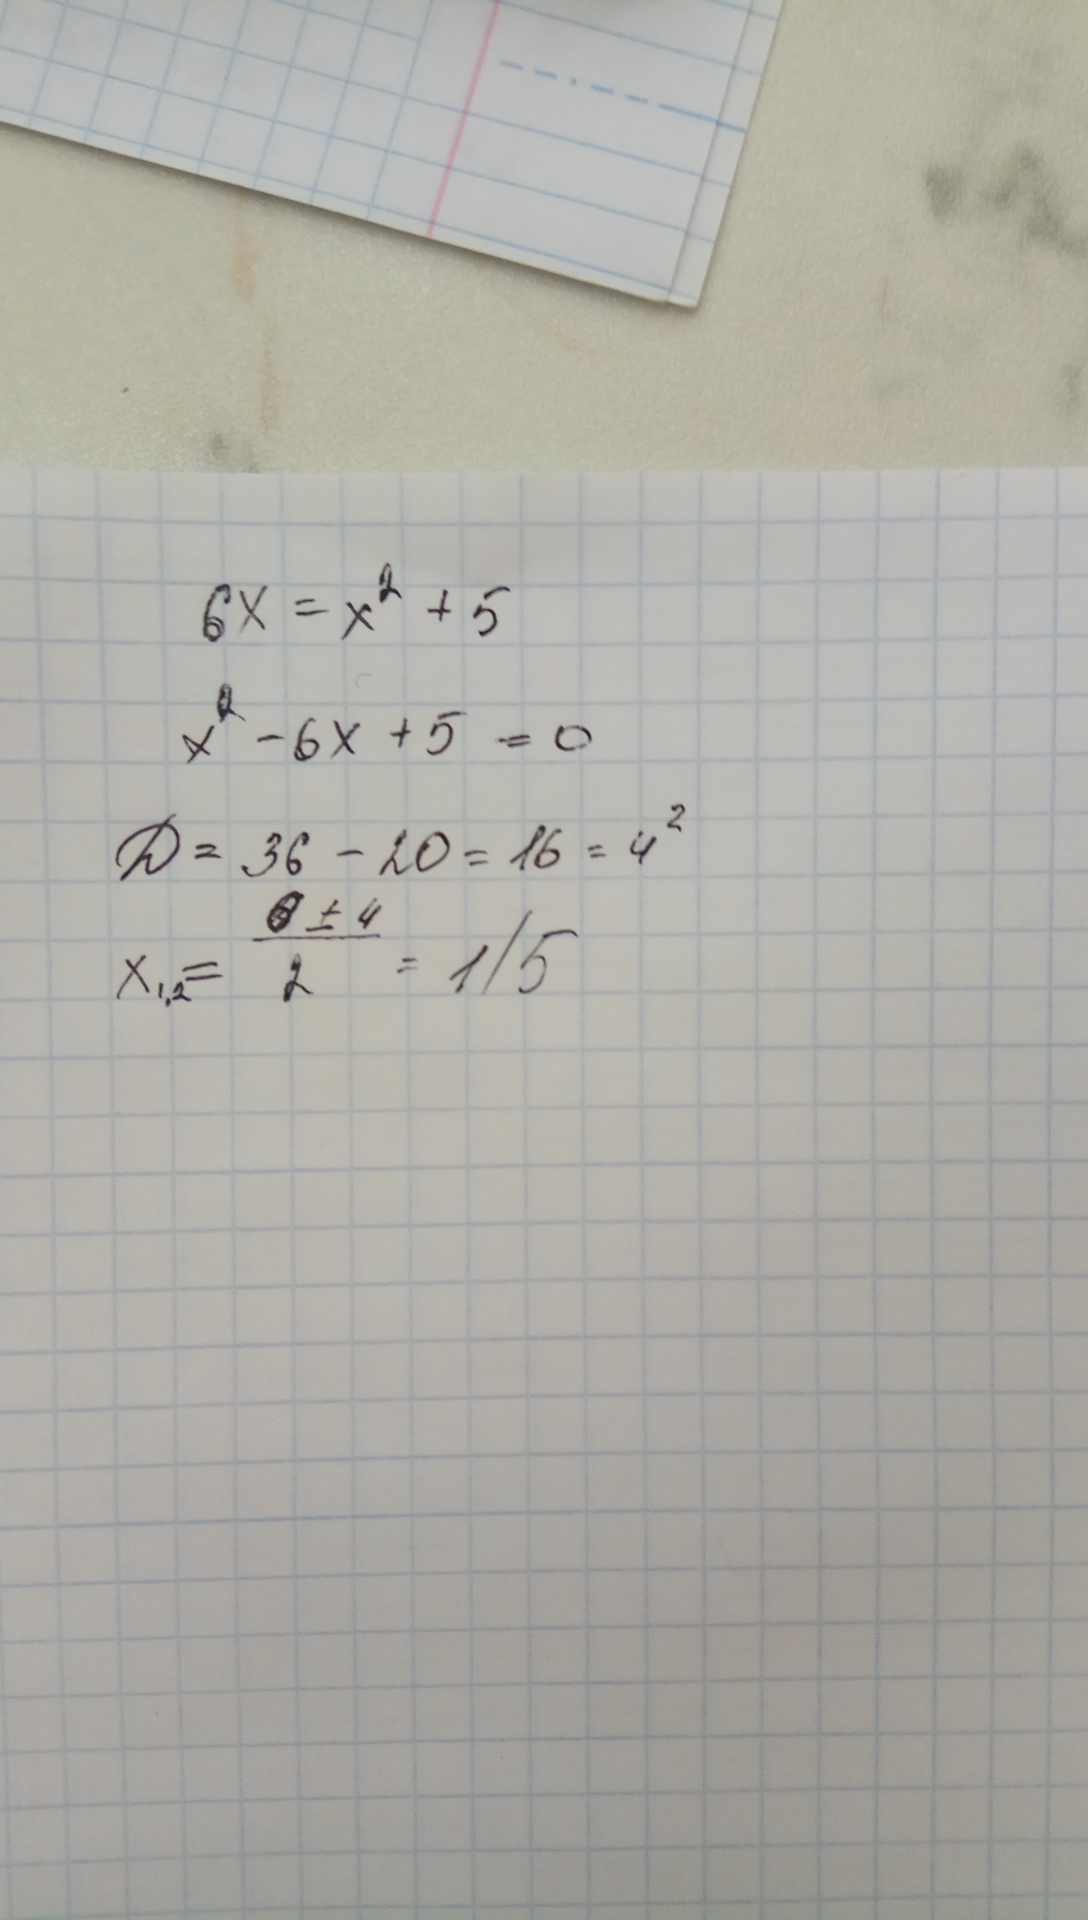 6x = x² + 5
x² - 6x + 5 = 0
D = 36 - 20 = 16 = 4²
x₁,₂ = (6 ± 4)/2 = 1/5